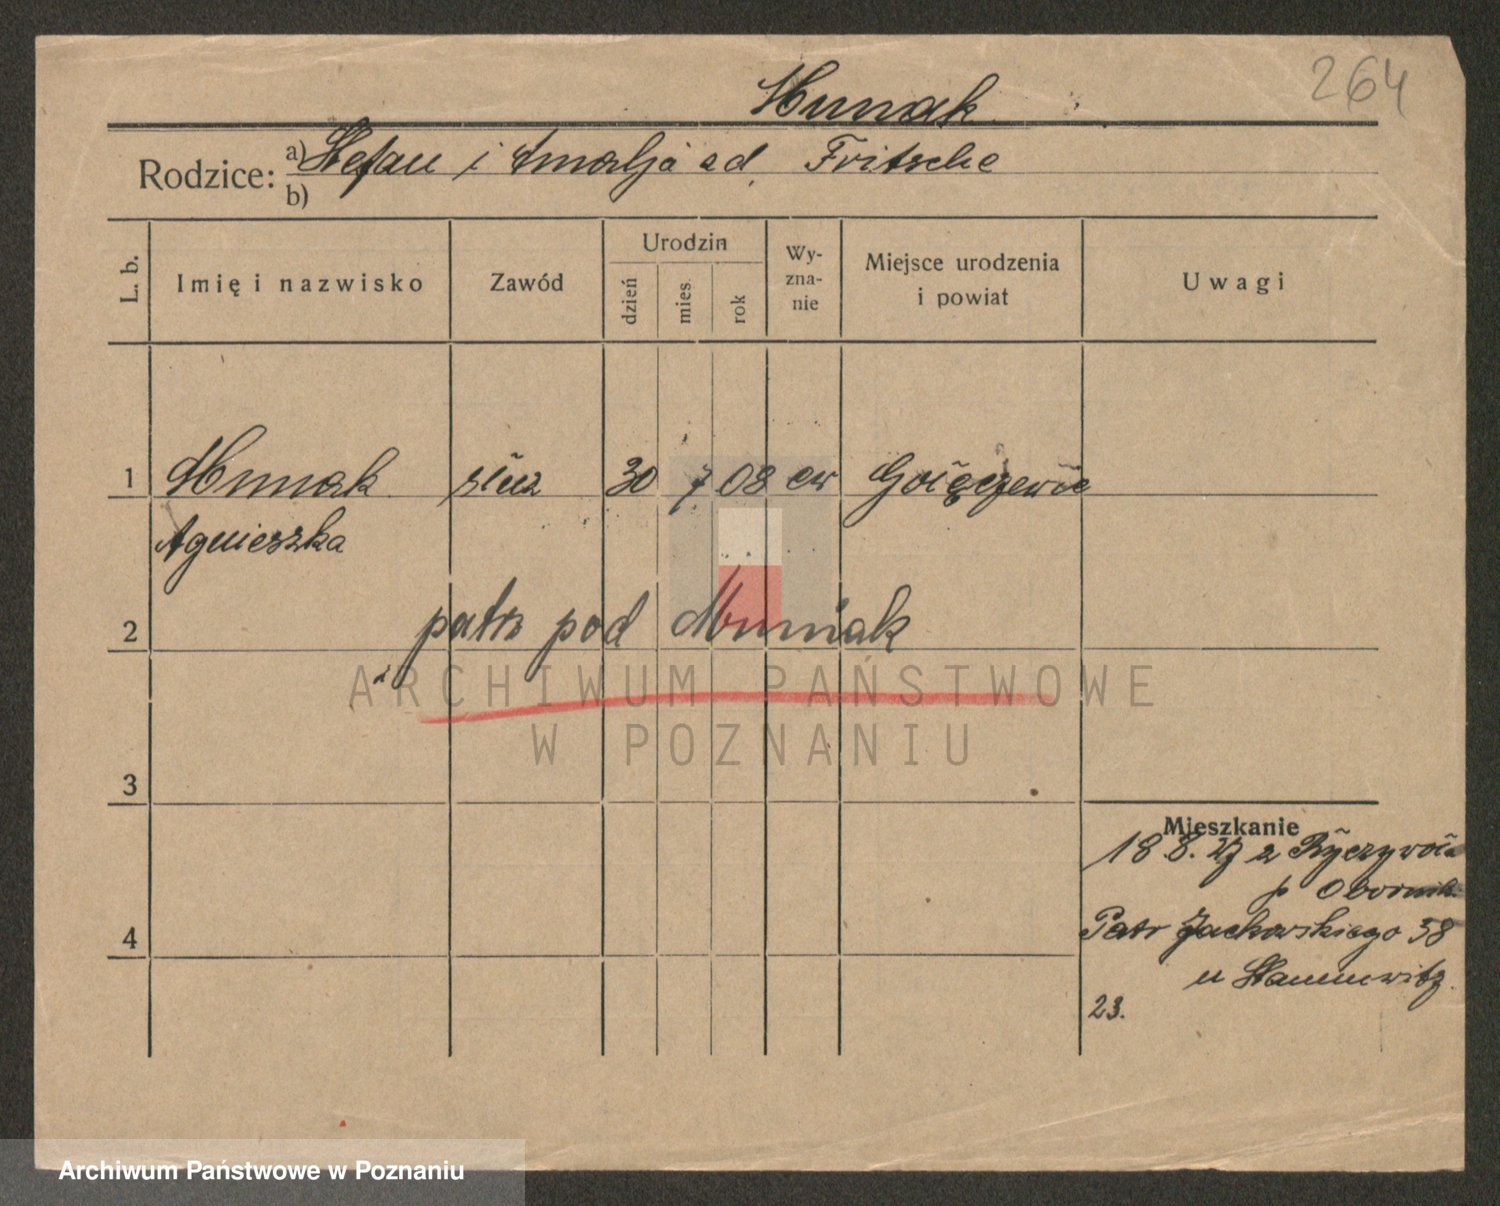 264
Munak
Rodzice: a) Stefan i Amalja ad. Fritsche
b)
L. b.
Imię i nazwisko
Zawód
Urodzin
dzień
mies.
rok
Wy-
zna-
nie
Miejsce urodzenia
i powiat
Uwagi
1 Munak służ 30 7 08 ew
Agnieszka
2 patrz pod Muniak
3
4
Mieszkanie
18.8.27 z Ryczywoła
p Obornik
Patr Jackowskiego 38
u
23.
ARCHIWUM PAŃSTWOWE
W POZNANIU
Archiwum Państwowe w Poznaniu